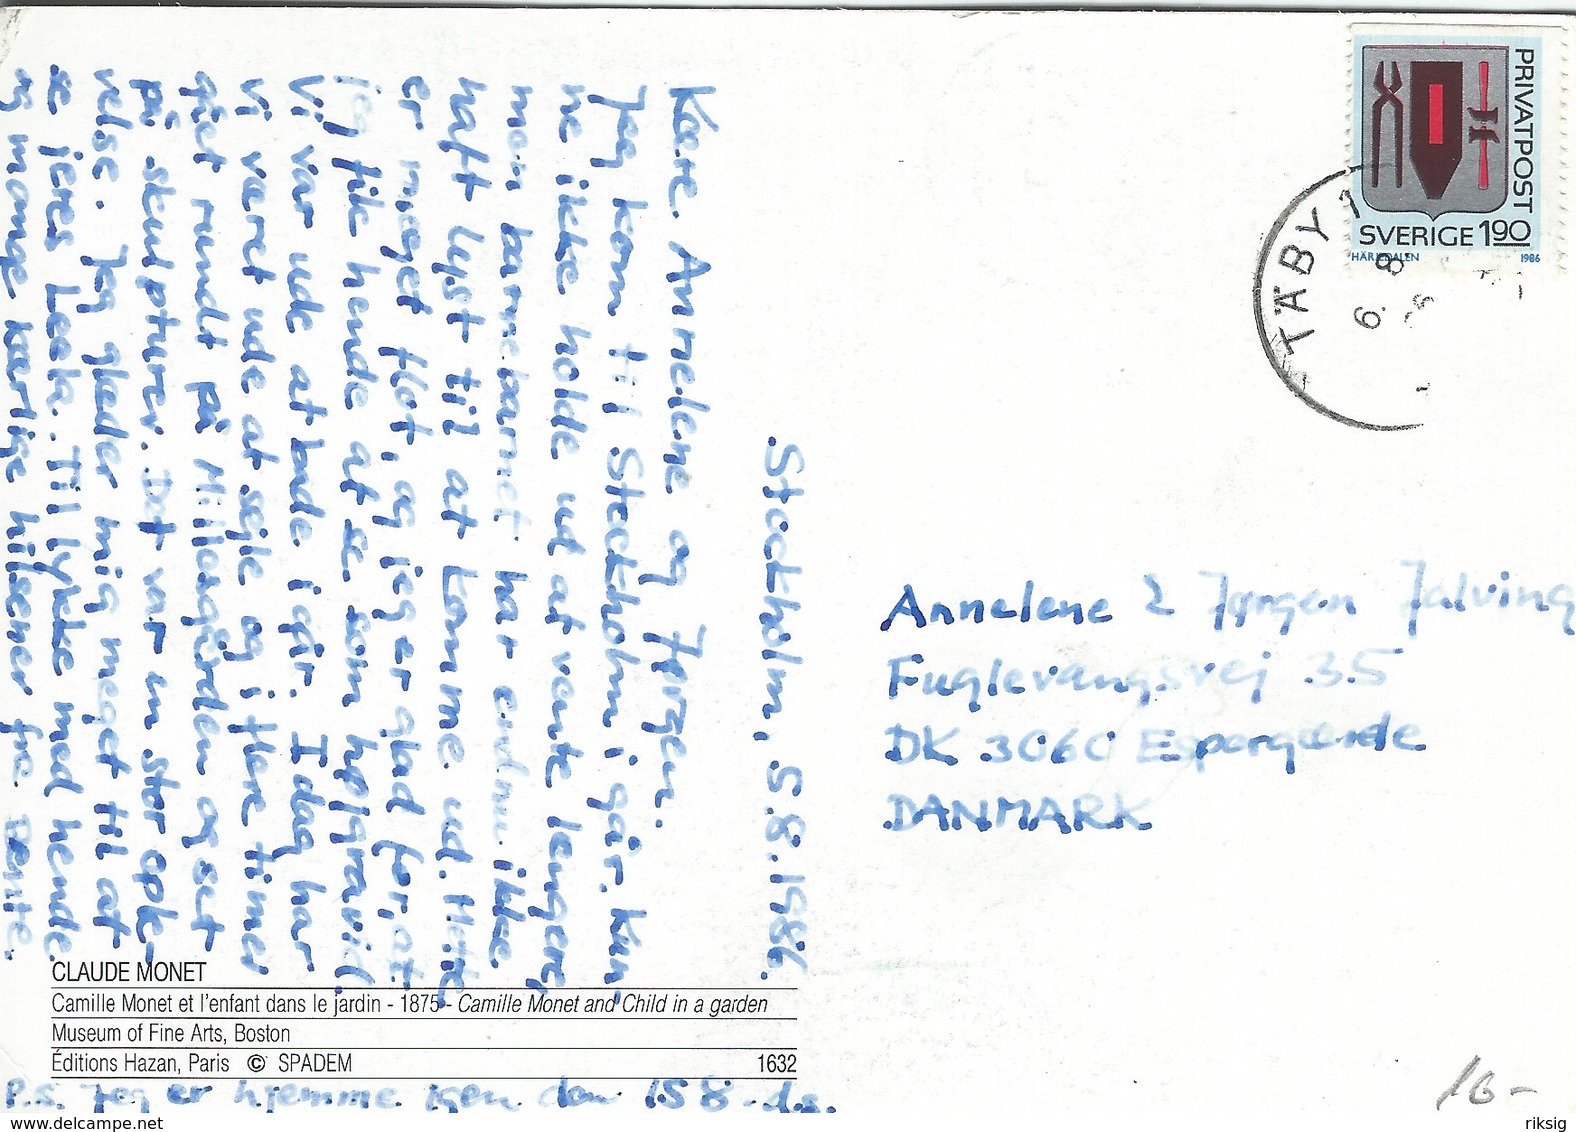 Stockholm, 5.8.1986.
Kære Annelene og Jørgen.
Jeg kom til Stockholm i går. Kun-
ne ikke holde ud at vente længere,
men barnebarnet har endnu ikke
haft lyst til at komme ud. Mette
er meget flot, og jeg er glad for, at
jeg fik hende at se som højgravid.
Vi var ude at bade i går. I dag har
vi været ude at sejle og i flere timer
gået rundt på Millesgården og set
på skulpturer. Det var en stor ople-
velse. Jeg glæder mig meget til at
se jeres Leela. Til lykke med hende
og mange kærlige hilsener fra Bente.
CLAUDE MONET
Camille Monet et l'enfant dans le jardin - 1875 - Camille Monet and Child in a garden
Museum of Fine Arts, Boston
Éditions Hazan, Paris © SPADEM 1632
P.S. Jeg er hjemme igen den 15 8. d.å.
PRIVATPOST
SVERIGE 1,90
HÄRJEDALEN 1986
TÄBY 1
6. 8
Annelene & Jørgen Jalving
Fuglevangsvej 35
DK 3060 Espergærde
DANMARK
16-
www.delcampe.net
riksig